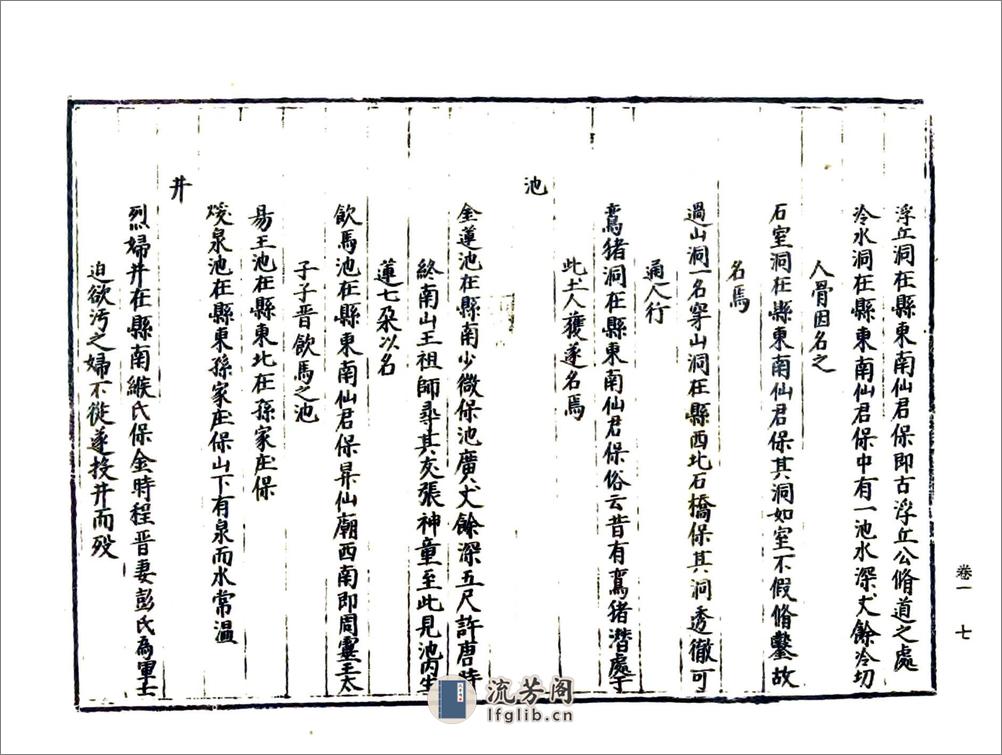 浮丘洞在縣東南仙君保即古浮丘公脩道之處
冷水洞在縣東南仙君保中有一池水深丈餘冷切
人骨因名之
石室洞在縣東南仙君保其洞如室不假脩鑿故
名焉
過山洞一名穿山洞在縣西北石橋保其洞透徹可
通人行
鴛猪洞在縣東南仙君保俗云昔有鴛猪潛處于
此土人獲遂名焉
池
金蓮池在縣南少微保池廣丈餘深五尺許唐時
終南山王祖師尋其友張神童至此見池內生
蓮七朶以名
飲馬池在縣東南仙君保昇仙廟西南即周靈王太
子子晉飲馬之池
昜王池在縣東北在孫家庄保
煖泉池在縣東孫家庄保山下有泉而水常溫
井
烈婦井在縣南緱氏保金時程晉妻彭氏為軍士
迫欲汚之婦不從遂投井而歿
卷一 七
流芳阁
lfglib.cn